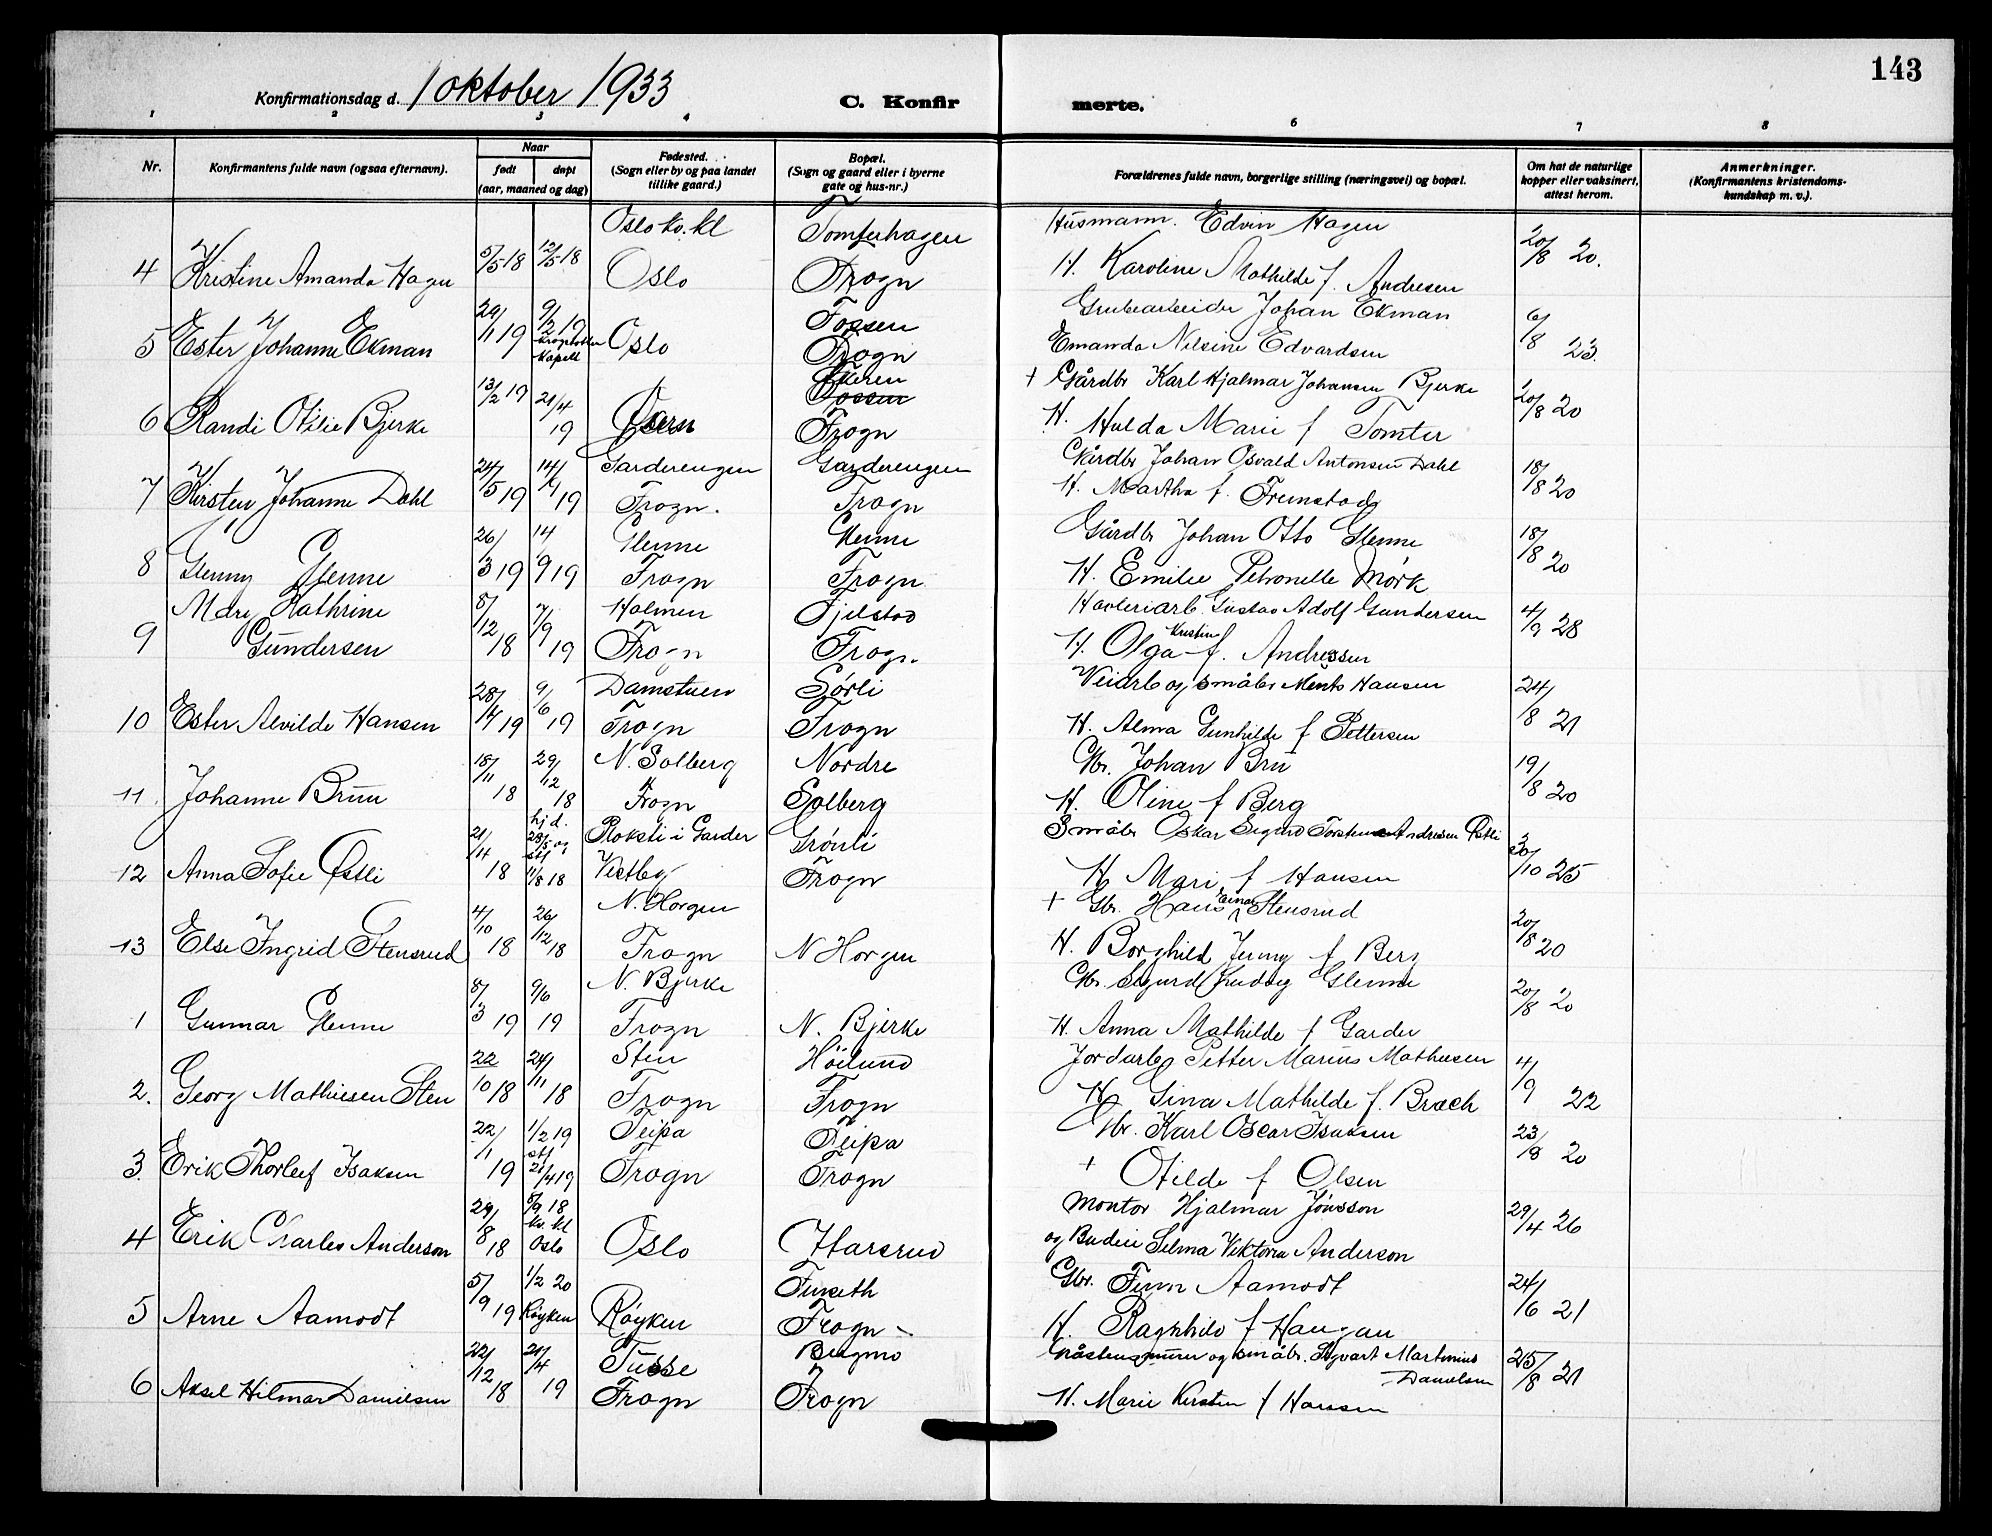 143
Konfirmationsdag d. 1 oktober 1933 C. Konfir merte.
1 2 3 4 6 7 8
Nr. Konfirmantens fulde navn (ogsaa efternavn). Naar født døpt (aar, maaned og dag) Fødested. (Sogn eller by og paa landet tillike gaard.) Bopæl. (Sogn og gaard eller i byerne gate og hus-nr.) Forældrenes fulde navn, borgerlige stilling (næringsvei) og bopæl. Om hat de naturlige kopper eller vaksinert, attest herom. Anmerkninger. (Konfirmantens kristendoms-kundskap m. v.).
Oslo kv. kl Tomterhagen Husmann. Edvin Hagen
4 Kristine Amanda Hagen 5/5 18 12/5 18 Oslo Frogn H. Karoline Mathilde f. Andresen 20/8 20.
Fossen Grubearbeider Johan Ekman
5 Ester Johanne Ekman 29/1 19 9/2 19 Kapell Oslo Frogn Emanda Nilsine Edvardsen 6/8 23.
Fossen + Gårdbr Karl Hjalmar Johansen Bjerke
6 Randi Otilie Bjerke 13/2 19 21/4 19 Frogn H. Hulda Marie f Tomter 20/8 20
Garderengen Garderengen Gårdbr Johan Osvald Antonsen Dahl
7 Kirsten Johanne Dahl 24/5 19 14/ 19 Frogn. Frogn H. Martha f. Fremstad 18/8 20
Glenne Glenne Gårdbr Johan Otto Glenne
8 Glenny Glenne 26/3 19 14/9 19 Frogn Frogn H. Emilie Petronelle Mörk 18/8 20
Mary Kathrine Holmen Fjelstad Gustav Adolf Gundersen
9 Gundersen 8/12 18 7/9 19 Frogn Frogn. H. Olga Kristine f. Andresen 4/9 28
Damstuen Sørli Veiarb og småbr Hansen
10 Ester Alvilde Hansen 28/4 19 9/6 19 Frogn Frogn H. Alma Gunhilde f Pettersen 24/8 21
N. Solberg Nordre Gbr. Johan Bru
11. Johanne Bruu 18/11 18 29/12 18 Frogn Solberg H. Oline f Berg 19/8 20
hjd. i Garder Grönli Småbr Oskar Sigurd Andresen Østli
12 Anna Sofie Østli 21/4 18 28/5 og stf 11/8 18 Vestby Frogn H. Mari f Hansen 30/10 25
N. Horgen + Gbr. Hans Einar Stensrud
13 Else Ingrid Stensrud 4/10 18 26/12 18 Frogn N Horgen H. Borghild Jenny f Berg 20/8 20
N. Bjerke Gbr. Sigurd Glenne
1 Gunnar Glenne 8/3 19 9/6 19 Frogn N. Bjerke H. Anna Mathilde f Garder 20/8 20
Sten Höilund Jordarb Petter Marius Mathiesen
2. Georg Mathiesen Sten 22/10 18 24/11 18 Frogn Frogn H. Gina Mathilde f. Bræck 4/9 22
Teipa Teipa Gbr. Karl Oscar Isaksen
3. Erik Thorleif Isaksen 22/1 19 1/2 19 stf 21/4 19 Frogn Frogn + Otilde f Olsen 23/8 20
Montør Hjalmar Jönsson
4 Erik Charles Anderson 29/8 18 5/9 18 kv. kl Oslo Oslo Harsrud og Budeie Selma Viktoria Anderson 29/4 26
Furseth Gbr. Finn Aamodt
5 Arne Aamodt 5/9 19 1/2 20 Røyken Røyken Frogn H. Ragnhild f Haugan 24/6 21
Tusse Bugmo Gråstensmurer og småbr. Sigvart Martinius Danielsen
6 Aksel Hilmar Danielsen 22/12 18 21/4 19 Frogn Frogn H. Marie Kirstin f Hansen 25/8 21